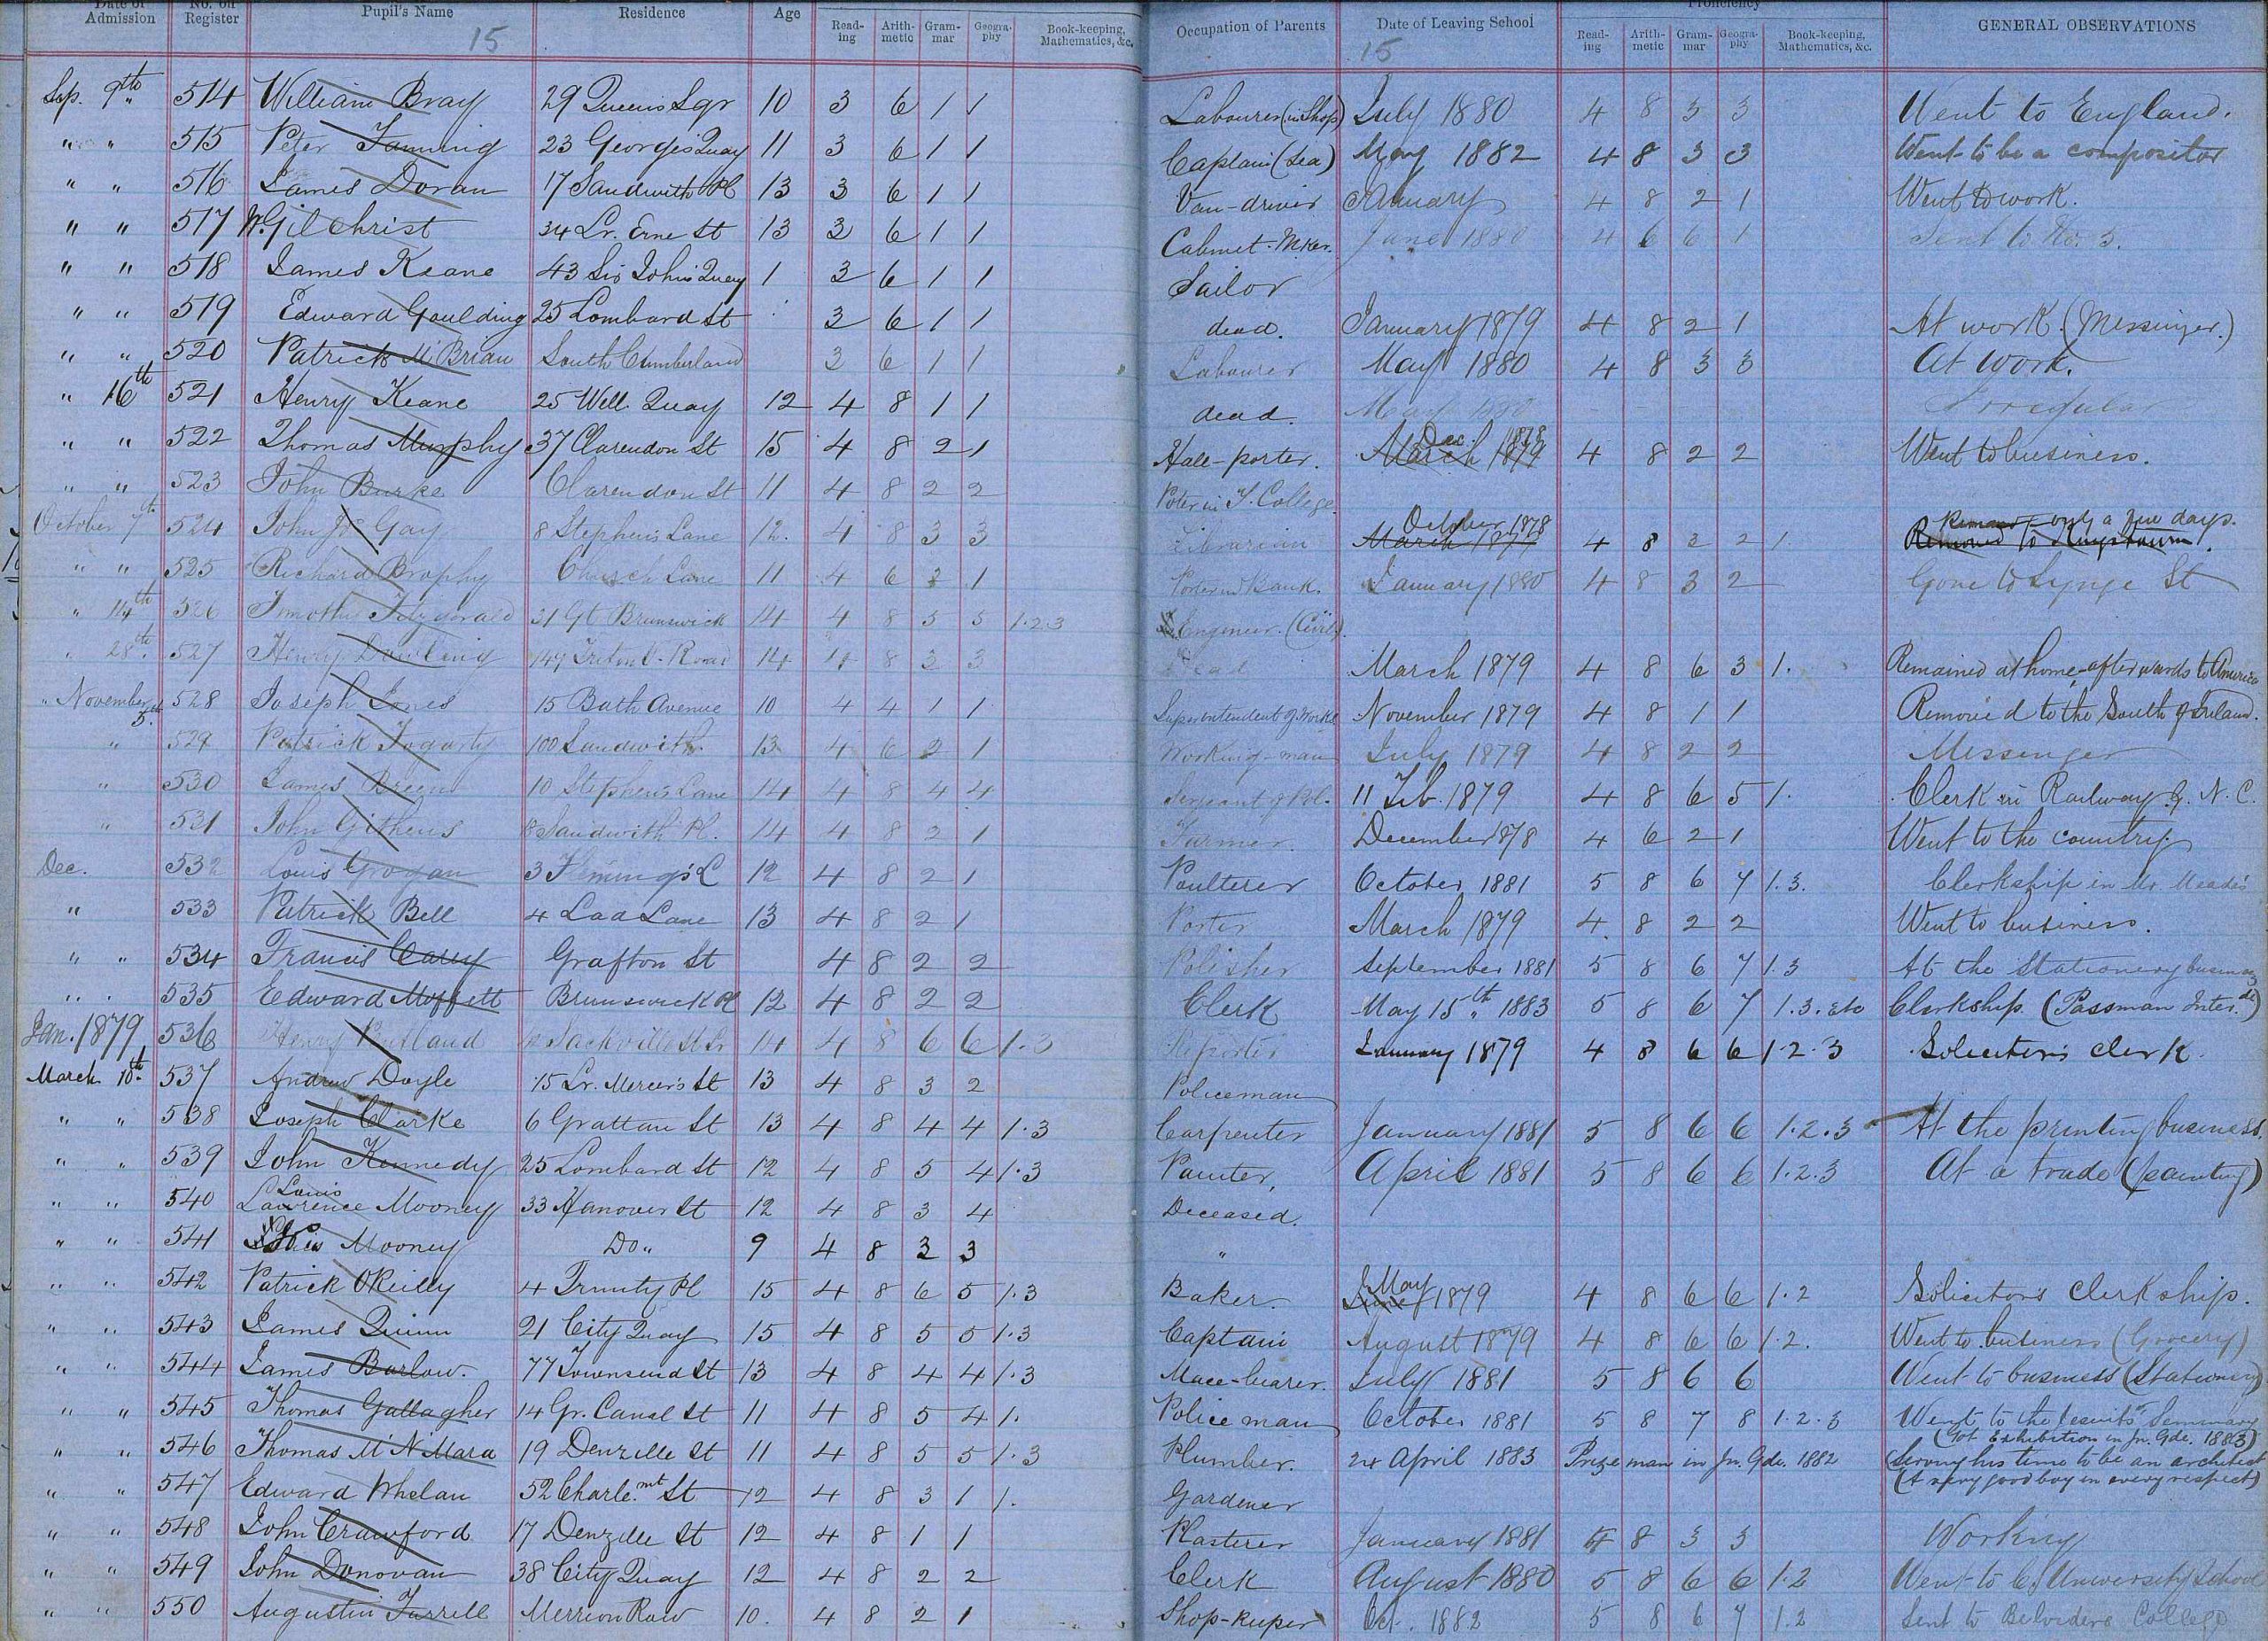 Date of Admission | No. on Register | Pupil's Name | Residence | Age | Reading | Arithmetic | Grammar | Geography | Book-keeping, Mathematics, &c. | Occupation of Parents | Date of Leaving School | Proficiency | Reading | Arithmetic | Grammar | Geography | Book-keeping, Mathematics, &c. | GENERAL OBSERVATIONS
15 15
Sep. 9th 514 William Bray 29 Queens Sqr 10 3 6 1 1 Labourer (in Shop) July 1880 4 8 3 3 Went to England.
" " 515 Peter Fanning 23 George's Quay 11 3 6 1 1 Captain (Sea) May 1882 4 8 3 3 Went to be a compositor
" " 516 James Doran 17 Sandwith Pl 13 3 6 1 1 Van-driver January 4 8 2 1 Went to work.
" " 517 W. Gilchrist 34 Lr. Erne St 13 3 6 1 1 Cabinet-Mker. June 1880 4 6 6 1 Sent to No. 5.
" " 518 James Keane 43 Sir John's Quay 1 3 6 1 1 Sailor
" " 519 Edward Goulding 25 Lombard St 3 6 1 1 dead. January 1879 4 8 2 1 At work. (Messinger.)
" " 520 Patrick McBrian South Cumberland 3 6 1 1 Labourer May 1880 4 8 3 3 At work.
" 16th 521 Henry Keane 25 Well. Quay 12 4 8 1 1 dead. May 1880 Irregular
" " 522 Thomas Murphy 37 Clarendon St 15 4 8 2 1 Hall-porter. March 1879 Dec. 1878 4 8 2 2 Went to business.
" " 523 John Burke Clarendon St 11 4 8 2 2 Poter in T. College
October 7th 524 John Jos Gay 8 Stephen's Lane 12. 4 8 3 3 Librarian March 1879 October 1878 4 8 3 2 1. Removed to Kingstown. Remand only a few days.
" " 525 Richard Brophy Church Lane 11 4 6 2 1 Porter in Bank. January 1880 4 8 3 2 Gone to Synge St
" 14th 526 Timothy Fitzgerald 21 Gt Brunswick 14 4 8 5 5 1.2.3 Engineer. (Civil).
" 28th 527 Henry Dowling 149 Road 14 4 8 3 3 Dead March 1879 4 8 6 3 1. Remained at home, afterwards to America
" November 5th 528 Joseph Jones 15 Bath Avenue 10 4 4 1 1 Superintendent of Works November 1879 4 8 1 1 Removed to the South of Ireland.
" 529 Patrick Fogarty 100 Sandwith 13 4 6 2 1 Working-man July 1879 4 8 2 2 Messenger
" 530 James Breen 10 Stephen's Lane 14 4 8 4 4 Sergeant of Pol. 11 Feb. 1879 4 8 6 5 1. Clerk in Railway G. N. C.
" 531 John Githens Sandwith Pl. 14 4 8 2 1 Farmer. December 1878 4 6 2 1 Went to the country.
Dec. 532 Louis Grogan 3 Fleming's L 12 4 8 2 1 Poulterer October 1881 5 8 6 7 1.3. Clerkship in Mr. Meade's
" 533 Patrick Bell 4 Lad Lane 13 4 8 2 1 Porter March 1879 4 8 2 2 Went to business.
" " 534 Francis Carey Grafton St 4 8 2 2 Polisher September 1881 5 8 6 7 1.3 At the Stationery business
" " 535 Edward Moffett Brunswick Pl 12 4 8 2 2 Clerk May 15th 1883 5 8 6 7 1.3. etc Clerkship. (Passman Inter.de)
Jan. 1879 536 Henry Rutland Sackville St Lr 14 4 8 6 6 1.3 Reporter January 1879 4 8 6 6 1.2.3 Solicitor's clerk.
March 10th 537 Andrew Doyle 15 Lr. Mercer's St 13 4 8 3 2 Policeman
" " 538 Joseph Clarke 6 Grattan St 13 4 8 4 4 1.3 Carpenter January 1881 5 8 6 6 1.2.3 At the printing business.
" " 539 John Kennedy 25 Lombard St 12 4 8 5 4 1.3 Painter, April 1881 5 8 6 6 1.2.3 At a trade (painting)
" " 540 Lawrence Louis Mooney 33 Hanover St 12 4 8 3 4 Deceased.
" " 541 Mooney Do " 9 4 8 3 3 "
" " 542 Patrick O'Reilly 4 Trinity Pl 15 4 8 6 5 1.3 Baker. June May 1879 4 8 6 6 1.2 Solicitors Clerkship.
" " 543 James Quinn 21 City Quay 15 4 8 5 5 1.3 Captain August 1879 4 8 6 6 1.2. Went to business (Grocery)
" " 544 James Barlow. 77 Townsend St 13 4 8 4 4 1.3 Mace-bearer. July 1881 5 8 6 6 Went to business (Stationery)
" " 545 Thomas Gallagher 14 Gr. Canal St 11 4 8 5 4 1. Police man October 1881 5 8 7 8 1.2.3 Went to the Jesuits' Seminary
(Got Exhibition in Jn. Gde. 1883)
" " 546 Thomas McNMara 19 Denzille St 11 4 8 5 5 1.3 Plumber. 24 April 1883 Prize man in Jn. Gde. 1882 (Serving his time to be an architect
(A very good boy in every respect)
" " 547 Edward Whelan 52 Charle.mt St 12 4 8 3 1 1. Gardener
" " 548 John Crawford 17 Denzille St 12 4 8 1 1 Plasterer January 1881 4 8 3 3 Working
" " 549 John Donovan 38 City Quay 12 4 8 2 2 Clerk August 1880 5 8 6 6 1.2 Went to C. University School
" " 550 Augustin Farrell Merrion Row 10. 4 8 2 1 Shop-keeper Oct. 1882 5 8 6 7 1.2 Sent to Belvidere College